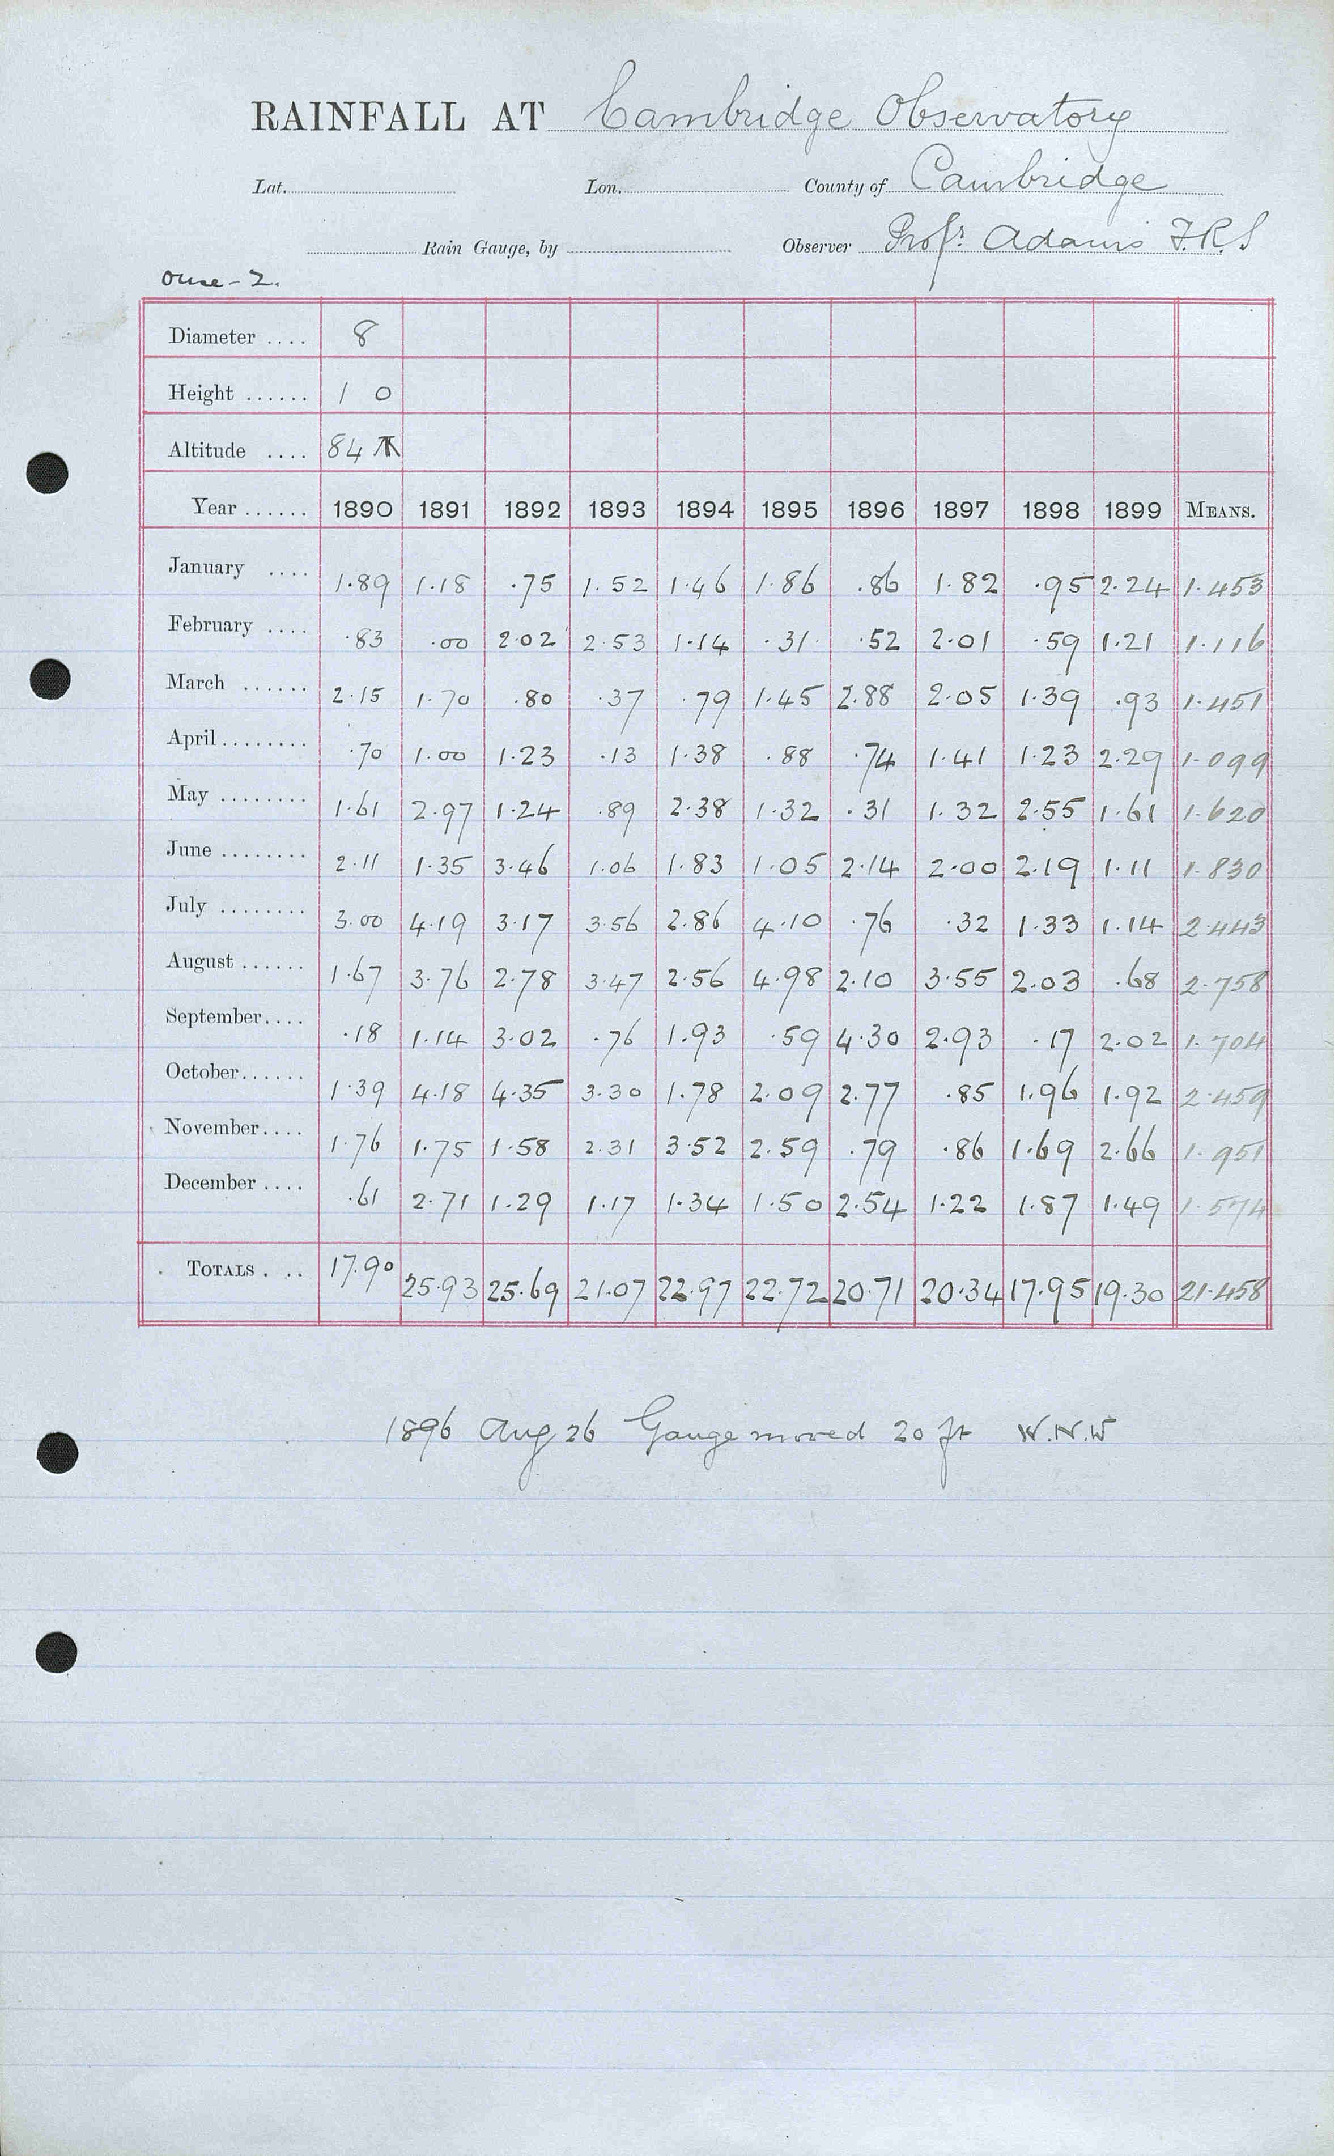 RAINFALL AT Cambridge Observatory
Lat. Lon. County of Cambridge
Rain Gauge, by Observer Profr. Adams F.R.S
Ouse - 2.
Diameter .... 8
Height ...... 1 0
Altitude .... 84
Year ...... 1890 1891 1892 1893 1894 1895 1896 1897 1898 1899 MEANS.
January .... 1.89 1.18 .75 1.52 1.46 1.86 .86 1.82 .95 2.24 1.453
February .... .83 .00 2.02 2.53 1.14 .31 .52 2.01 .59 1.21 1.116
March ...... 2.15 1.70 .80 .37 .79 1.45 2.88 2.05 1.39 .93 1.451
April........ .70 1.00 1.23 .13 1.38 .88 .74 1.41 1.23 2.29 1.099
May ........ 1.61 2.97 1.24 .89 2.38 1.32 .31 1.32 2.55 1.61 1.620
June ........ 2.11 1.35 3.46 1.06 1.83 1.05 2.14 2.00 2.19 1.11 1.830
July ........ 3.00 4.19 3.17 3.56 2.86 4.10 .76 .32 1.33 1.14 2.443
August ...... 1.67 3.76 2.78 3.47 2.56 4.98 2.10 3.55 2.03 .68 2.758
September.... .18 1.14 3.02 .76 1.93 .59 4.30 2.93 .17 2.02 1.704
October...... 1.39 4.18 4.35 3.30 1.78 2.09 2.77 .85 1.96 1.92 2.459
November.... 1.76 1.75 1.58 2.31 3.52 2.59 .79 .86 1.69 2.66 1.951
December .... .61 2.71 1.29 1.17 1.34 1.50 2.54 1.22 1.87 1.49 1.574
TOTALS . .. 17.90 25.93 25.69 21.07 22.97 22.72 20.71 20.34 17.95 19.30 21.458
1896 Aug 26 Gauge moved 20 ft W.N.W